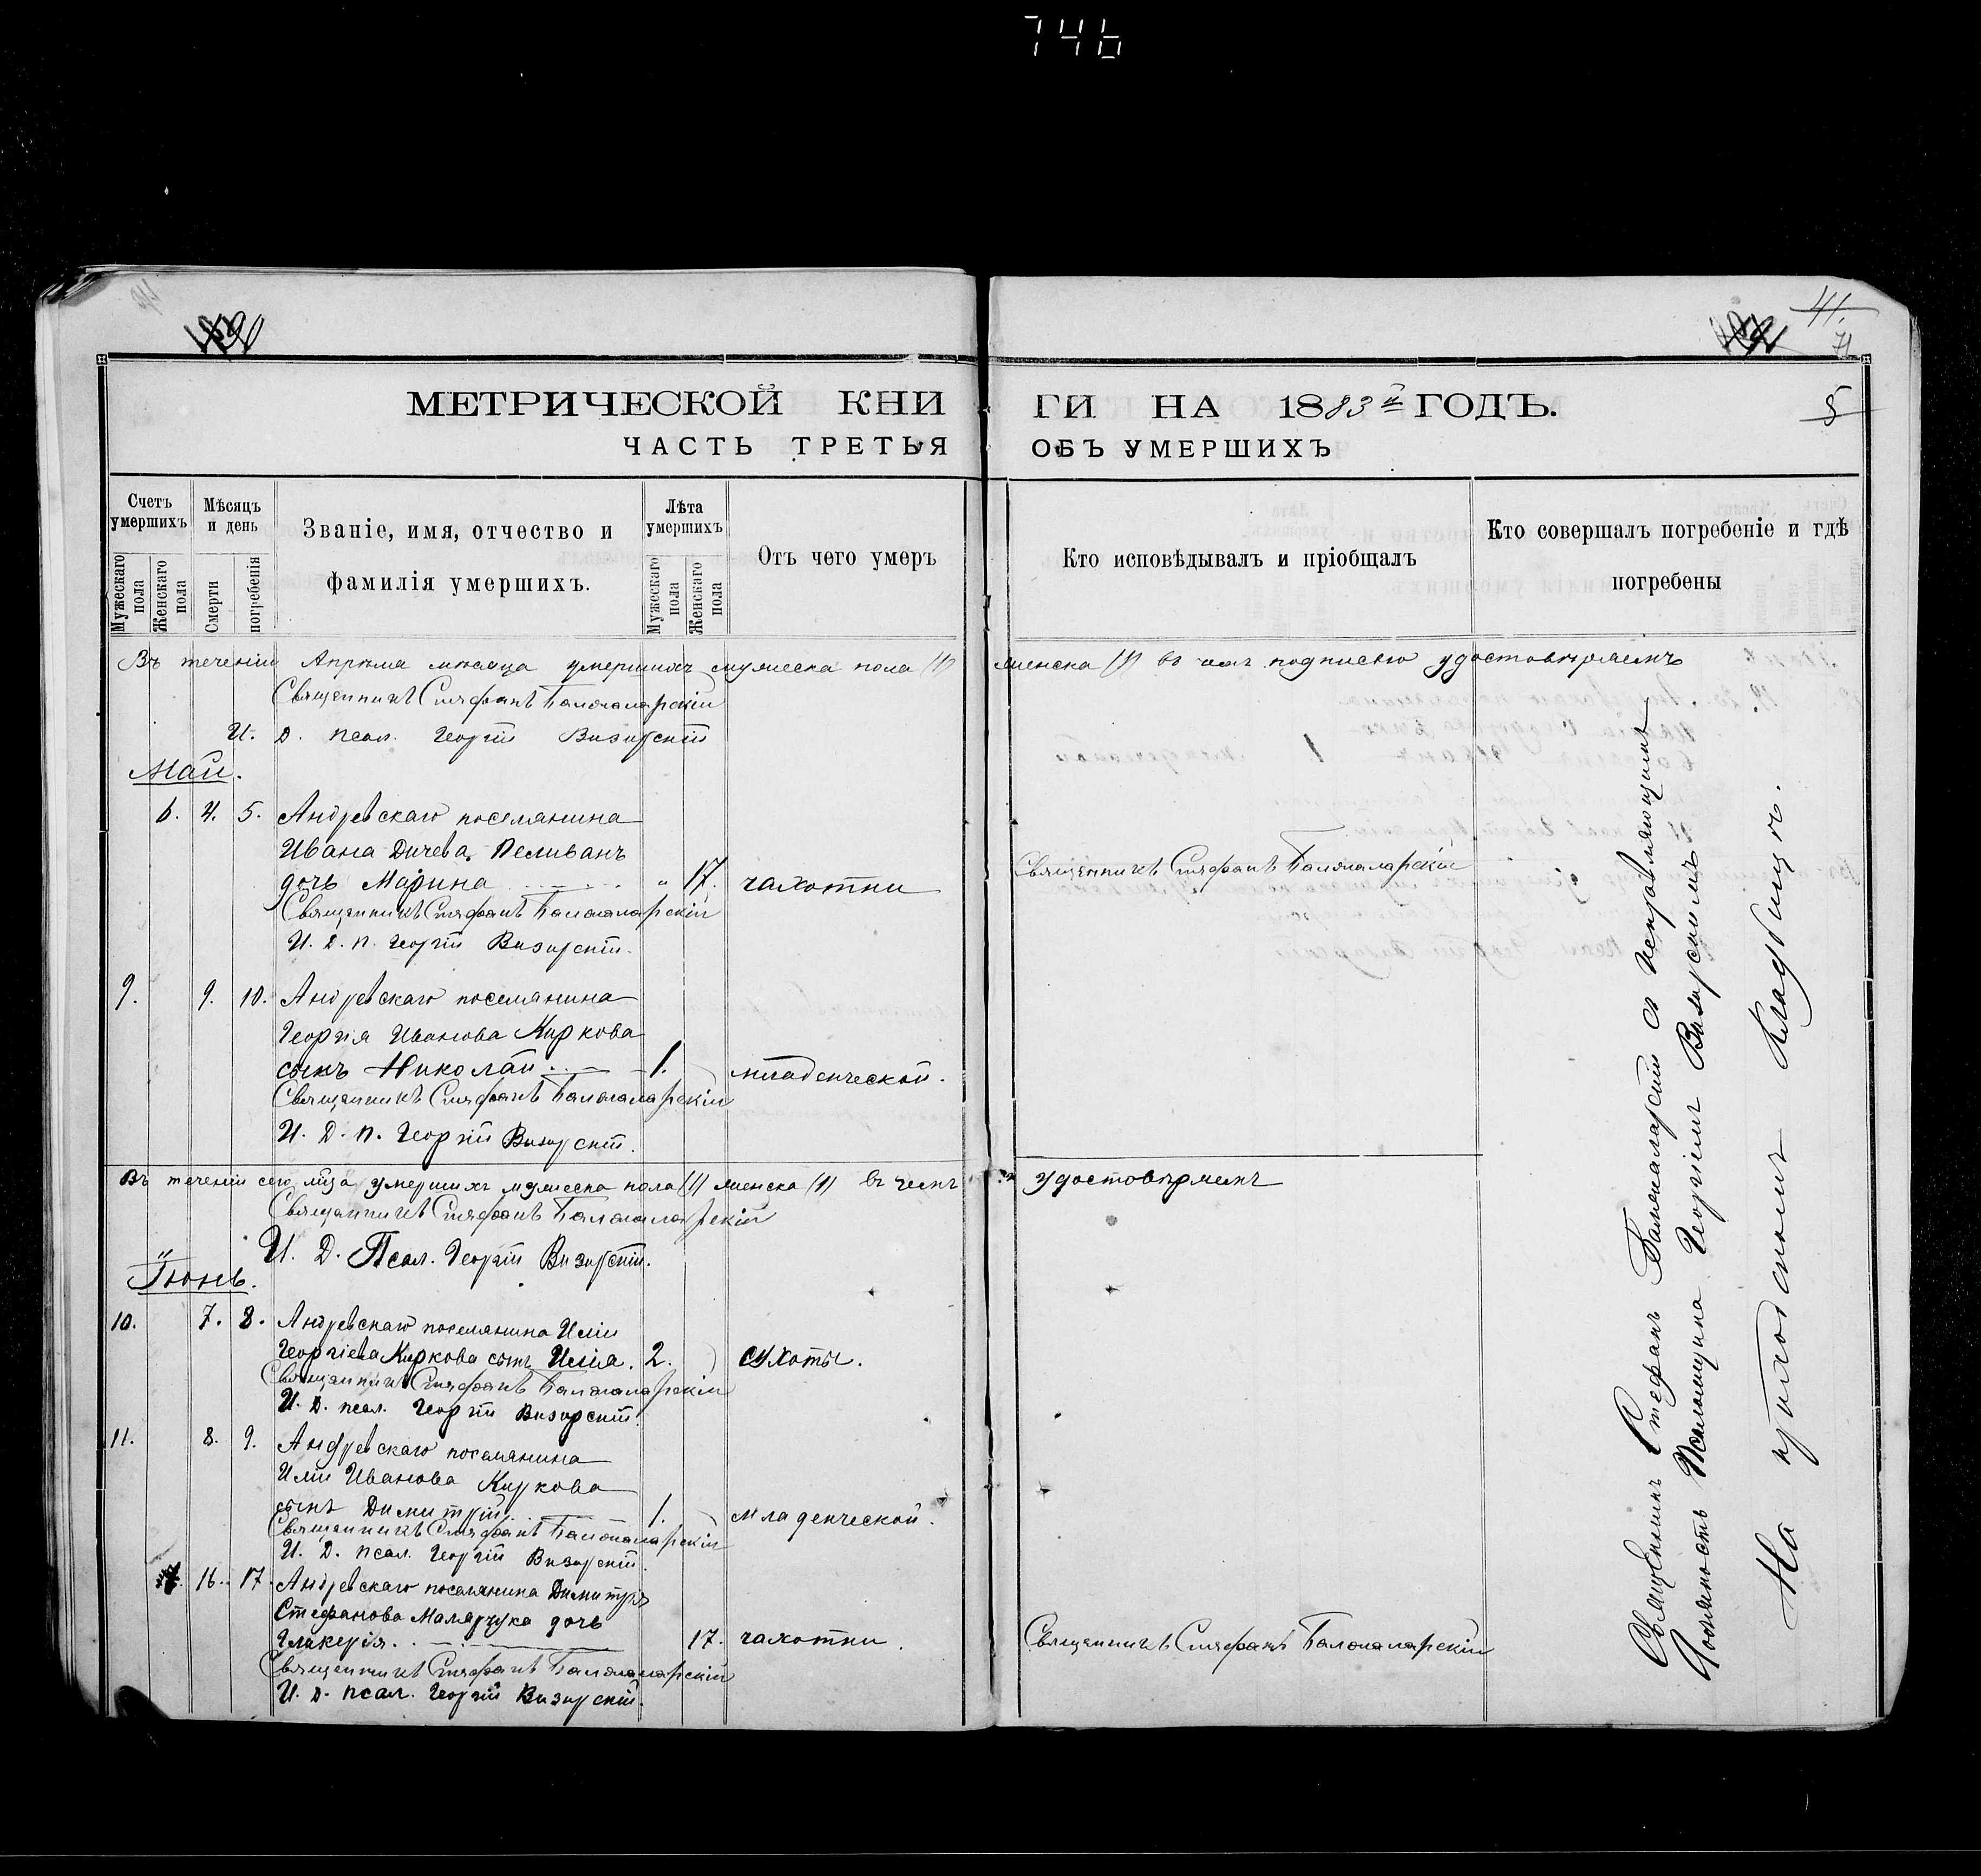 746
41.
71
5
МЕТРИЧЕСКОЙ КНИГИ НА 1883й ГОДЪ.
ЧАСТЬ ТРЕТЬЯ ОБЪ УМЕРШИХЪ
Счетъ умершихъ
Мужескаго пола
Женскаго пола
Мѣсяцъ и день
Смерти
погребенія
Званіе, имя, отчество и фамилія умершихъ.
Лѣта умершихъ
Мужескаго пола
Женскаго пола
Отъ чего умеръ
Кто исповѣдывалъ и пріобщалъ
Кто совершалъ погребеніе и гдѣ погребены
Въ теченіи Апрѣля мѣсяца умершихъ мужеска пола (1) женска (1) въ чемъ подписью удостовѣряемъ
Священникъ Стефанъ
И. Д. псал. Георгій Визирскій
Май.
6. 4. 5. Андревскаго поселянина
Ивана Дичева Пеливанъ
дочь Марина " 17. чахотки
Священникъ Стефанъ
Священникъ Стефанъ
И. Д. п. Георгій Визирскій.
9. 9. 10. Андревскаго поселянина
Георгія Иванова Киркова
сынъ Николай 1. младенческой.
Священникъ Стефанъ
И. Д. п. Георгій Визирскій.
Въ теченіи сего м-ца умершихъ мужеска пола (1) женска (1) въ чемъ удостовѣряемъ
Священникъ Стефанъ
И. Д. Псал. Георгій Визирскій.
Іюнь.
10. 7. 8. Андревскаго поселянина Иліи
Георгіева Киркова сынъ Илія. 2. сухоты.
Священникъ Стефанъ
И. Д. псал. Георгій Визирскій.
11. 8. 9. Андревскаго поселянина
Иліи Иванова Киркова
сынъ Димитрій 1. младенческой.
Священникъ Стефанъ
И. Д. псал. Георгій Визирскій.
7. 16. 17. Андревскаго поселянина Димитрія
Стефанова Малярчука дочь
Гликерія. 17. чахотки.
Священникъ Стефанъ
Священникъ Стефанъ
И. Д. псал. Георгій Визирскій.
Священникъ Стефанъ съ исправляющимъ
должность Псаломщика Георгіемъ Визирскимъ
На приходскомъ кладбищѣ.